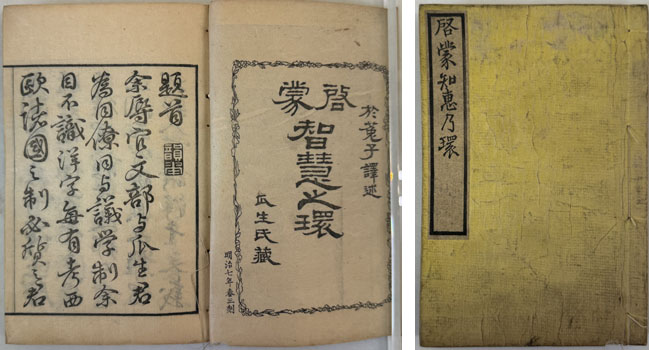 啓蒙知惠乃環
於菟子譯述
啓蒙
智慧之環
瓜生氏藏
明治七年春三刻
題首
余辱官文部与瓜生君
為同僚同与議学制余
目不識洋字毎有考西
欧諸國之制必質之君